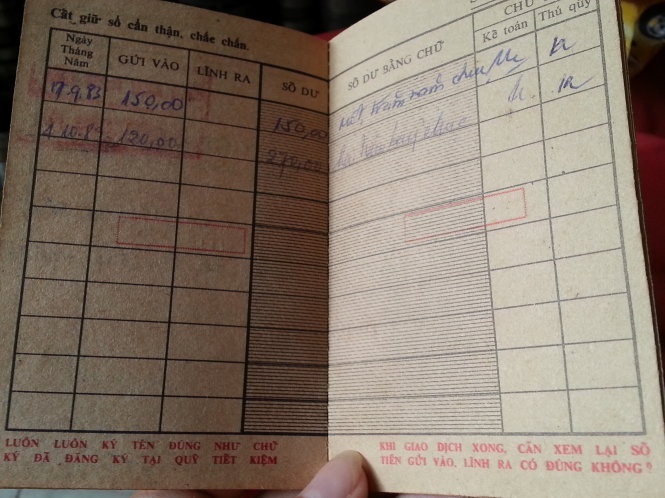 Cất giữ sổ cẩn thận, chắc chắn.
Ngày Tháng Năm
GỬI VÀO
LĨNH RA
SỐ DƯ
SỐ DƯ BẰNG CHỮ
CHỮ
Kế toán
Thủ quỹ
9.83 150,00 150,00 một trăm năm chục
10.8 120,00 270,00 hai trăm bảy chục
LUÔN LUÔN KÝ TÊN ĐÚNG NHƯ CHỮ
KÝ ĐÃ ĐĂNG KÝ TẠI QUỸ TIẾT KIỆM
KHI GIAO DỊCH XONG, CẦN XEM LẠI SỐ
TIỀN GỬI VÀO, LĨNH RA CÓ ĐÚNG KHÔNG?